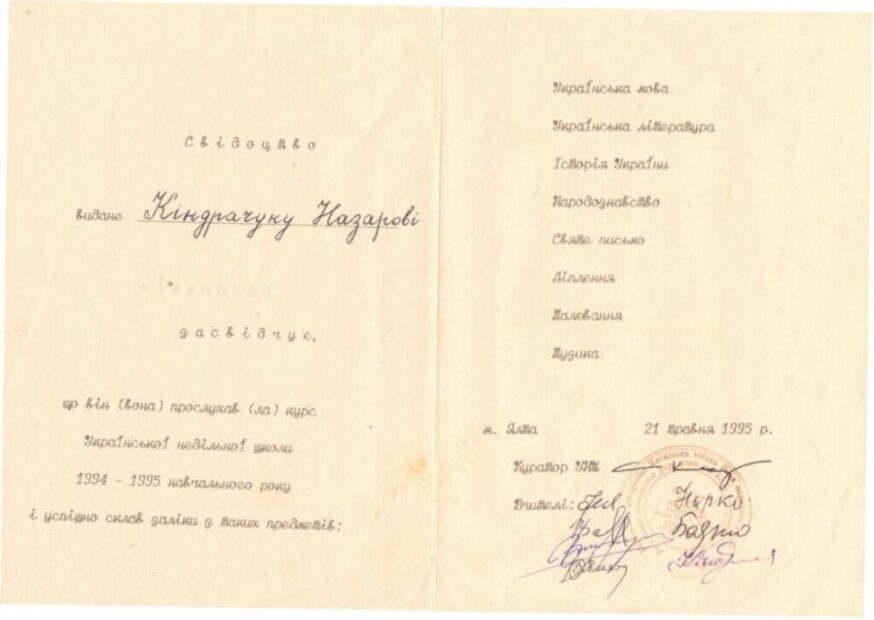 Свідоцтво
видане Кіндрачуку Назарові
засвідчує,
що він (вона) прослухав (ла) курс
Української недільної школи
1994 - 1995 навчального року
і успішно склав заліки з таких предметів:
Українська мова
Українська література
Історія України
Народознавство
Святе письмо
Ліплення
Малювання
Музика
м. Ялта 21 травня 1995 р.
Куратор УНШ
Вчителі: